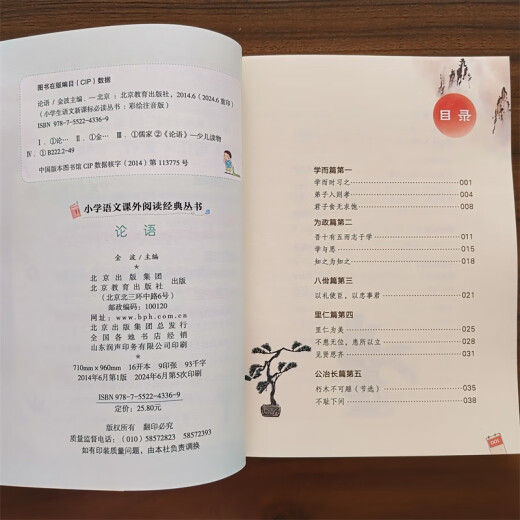 图书在版编目（CIP）数据
论语 / 金波主编. —北京：北京教育出版社，2014.6（2024.6 重印）
（小学生语文新课标必读丛书：彩绘注音版）
ISBN 978-7-5522-4336-9
Ⅰ. ①论… Ⅱ. ①金… Ⅲ. ①儒家 ②《论语》—少儿读物
Ⅳ. ①B222.2-49
中国版本图书馆 CIP 数据核字（2014）第 113775 号
小学语文课外阅读经典丛书
论语
金波 / 主编
★
北京出版集团
北京教育出版社
出版
（北京北三环中路6号）
邮政编码：100120
网址：www.bph.com.cn
北京出版集团总发行
全国各地书店经销
山东润声印务有限公司印刷
★
710mm×960mm 16开本 9印张 93千字
2014年6月第1版 2024年6月第5次印刷
ISBN 978-7-5522-4336-9
定价：25.80元
版权所有 翻印必究
质量监督电话：（010）58572823 58572393
如有印装质量问题，由本社负责调换
目录
学而篇第一
学而时习之 001
弟子入则孝 004
君子食无求饱 008
为政篇第二
吾十有五而志于学 011
学与思 015
知之为知之 018
八佾篇第三
以礼使臣，以忠事君 021
里仁篇第四
里仁为美 025
不患无位，患所以立 028
见贤思齐 031
公冶长篇第五
朽木不可雕（节选） 035
不耻下问 038
001